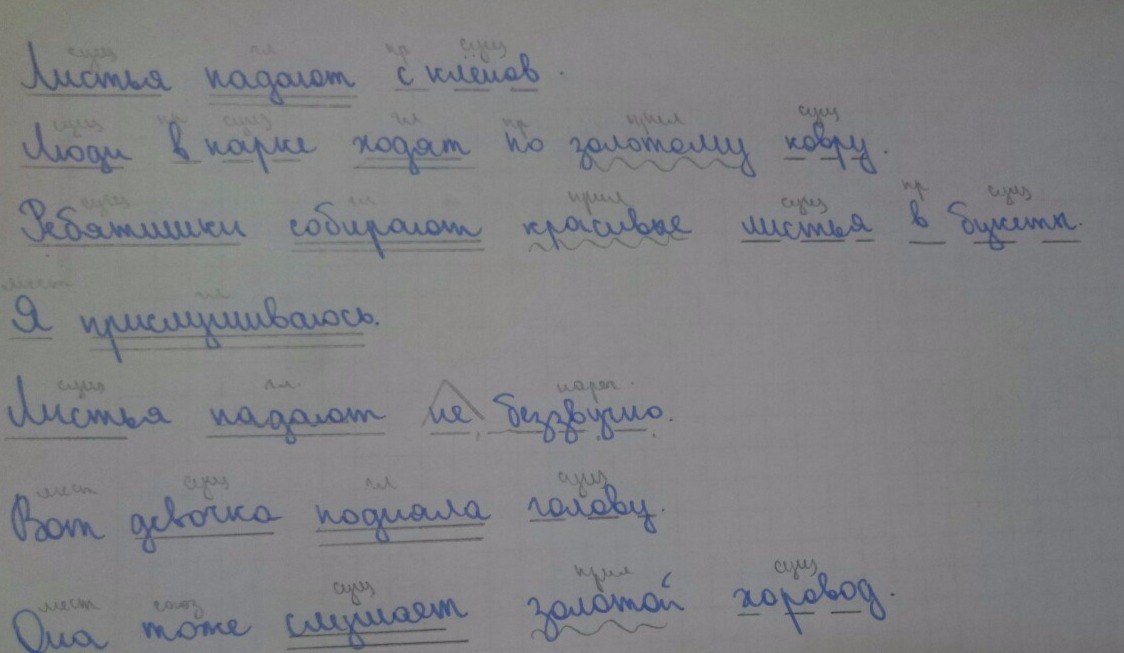 сущ гл пр сущ
Листья падают с клёнов.
сущ пр сущ гл пр прил сущ
Люди в парке ходят по золотому ковру.
сущ гл прил сущ пр сущ
Ребятишки собирают красивые листья в букеты.
мест гл
Я прислушиваюсь.
сущ гл. нареч.
Листья падают не беззвучно.
мест сущ гл сущ
Вот девочка подняла голову.
мест союз сущ прил сущ
Она тоже слушает золотой хоровод.